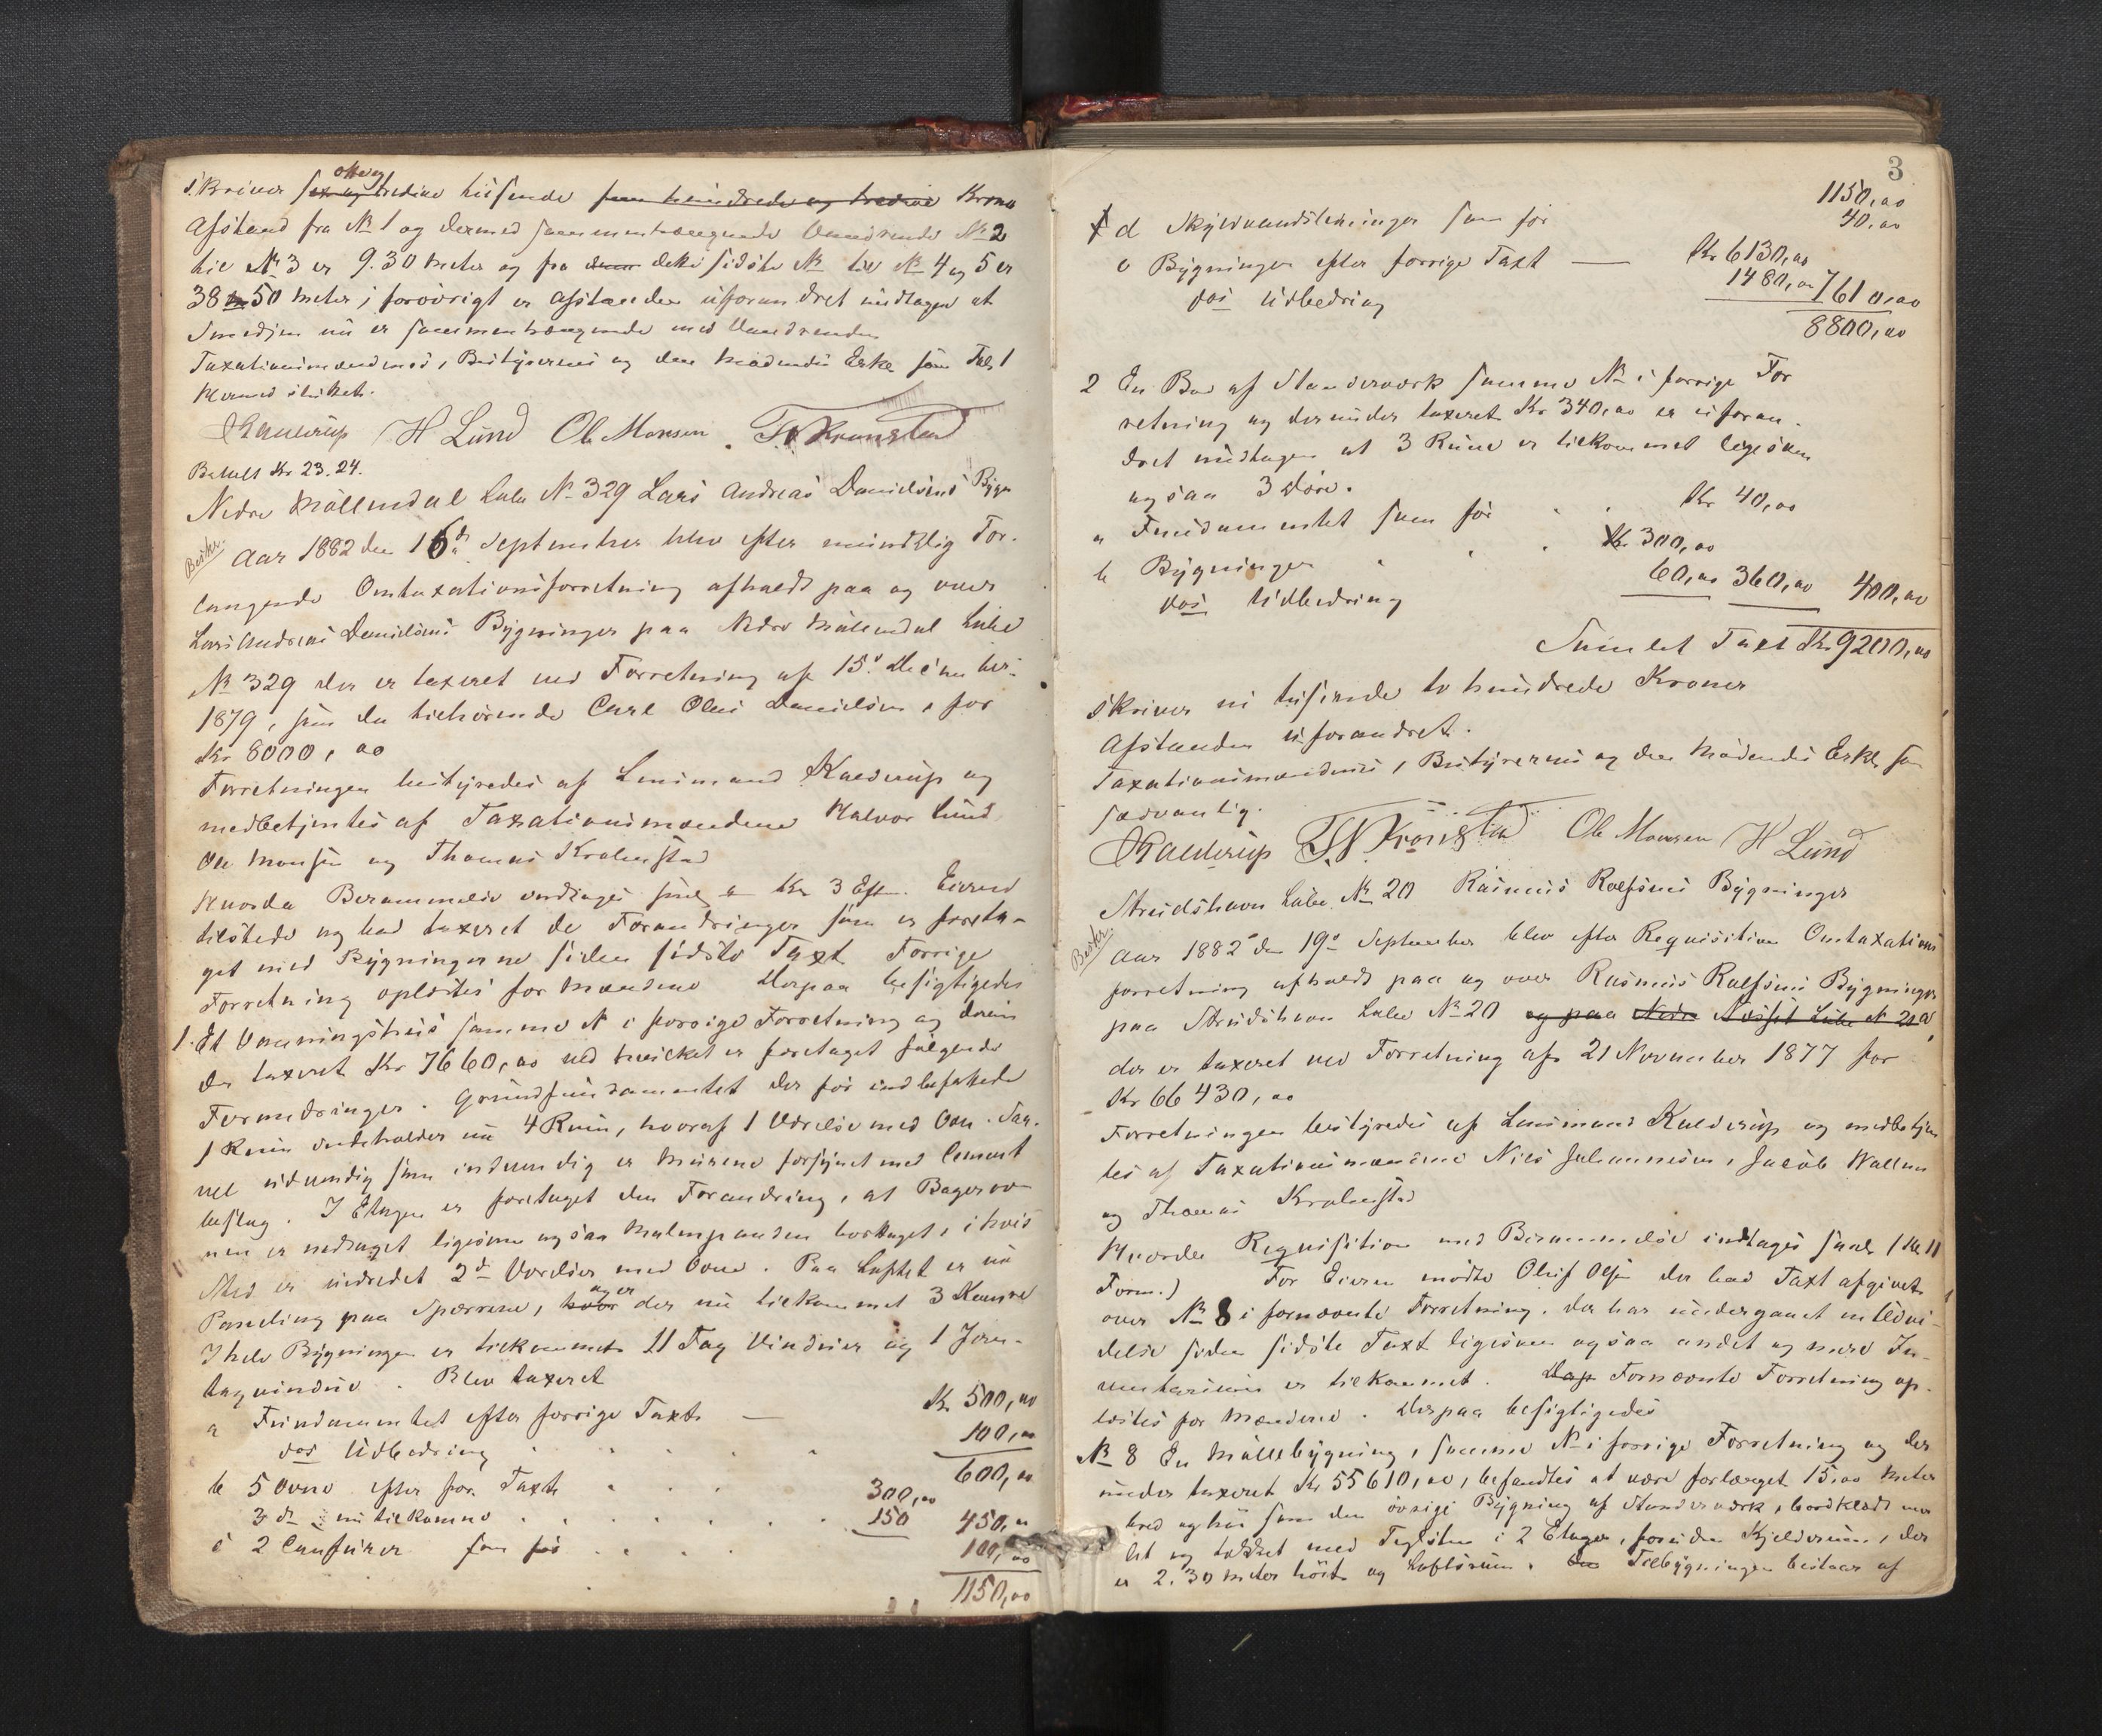 otte og
skriver sex og tredive tusende fem hundrede og tredive Kroner
Afstand fra № 1 og dermed sammenhængende Vandrende № 2
til № 3 er 9.30 Meter og fra denn dette sidste № til № 4 og 5 er
38 50 Meter; forøvrigt er Afstanden uforandret undtagen at
Smedjen nu er sammenhængende med Vandrenden
Taxationsmændenes, Bestyrerens og den mødendes Erkl. som Fol. 1
Hermed sluttet.
JKalderup H Lund Ole Monsen. T. N. Kronstad
Betalt Kr 23.24.
Nedre Møllendal Lubr № 329 Lars Andreas Danielsens Bygn
Beskr. Aar 1882 den 16de September blev efter mundtlig For-
langende Omtaxationsforretning afholdt paa og over
Lars Andreas Danielsens Bygninger paa Nedre Møllendal Lube
№ 329 der er taxeret ved Forretning af 15de Decemb ber
1879, som da tilhørende Carl Olai Danielsen, for
Kr 8000, oo
Forretningen bestyredes af Lensmand Kalderup og
medbetjentes af Taxationsmændene Halvor Lund
Ole Monsen og Thomas Krohnstad
Hvorda Berammelse vedtages sml. Kl 3 Eftm. Eieren
tilstede og bad taxeret de Forandringer som er foreta-
get med Bygningerne siden sidste Taxt Forrige
Forretning oplæstes for Mændene Derpaa besigtigedes
1. Et Vaaningshus samme № i forrige Forretning og derun
der taxeret Kr 7660, oo ved hvilket er foretaget følgende
Forandringer. Grundfundamentet der før indbefattede
1 Rum indeholder nu 4 Rum, hvoraf 1 Værelse med Ovn. Saa-
vel udvendig som indvendig er Murene forsynet med Cement
beslag. I Etagen er foretaget den Forandring, at Bagerov-
nen er nedtaget ligesom ogsaa Malmpanden borttaget, i hvis
Sted er indredet 2de Værelser med Ovne. Paa Loftet er nu
og er
Paneling paa Sperrene, hvor der nu tilkommet 3 Kamre
I hele Bygningen er tilkommet 11 Fag Vinduer og 1 Jern-
tagvindue. Blev taxeret
a Fundamentet efter forrige Taxt — Kr 500, oo
dos Udbedring 100, oo
600, oo
b 5 Ovne efter for. Taxt 300, oo
3 do nu tilkomne 150 450, oo
c 2 Comfurer som før 100, oo
1150, oo
3
1150, oo
d Skylvandsledninger som før 40, oo
e Bygningen efter forrige Taxt — Kr 6130, oo
dos Udbedring 1480, oo 7610, oo
8800, oo
2 En Bod af Standerværk samme № i forrige For
retning og derunder taxeret Kr 340, oo er uforan-
dret undtagen at 3 Rum er tilkommet ligesom
ogsaa 3 Døre.
a Fundamentet som før Kr 40, oo
b Bygningen Kr 300, oo
dos Udbedring 60, oo 360, oo 400, oo
Samlet Taxt Kr 9200, oo
skriver ni tusinde to hundrede Kroner
Afstanden uforandret.
Taxationsmændenes, Bestyrerens og den Mødendes Erkl. som
sædvanlig.
JKalderup T. N. Kronstad Ole Monsen H Lund
Strudshavn Lube № 20 Rasmus Rolfsens Bygninger
Beskr. Aar 1882 den 19de September blev efter Requisition Omtaxations
forretning afholdt paa og over Rasmus Rolfsens Bygninger
paa Strudshavn Lube № 20 og paa Nedre Lube № 21a
der er taxeret ved Forretning af 21 November 1877 for
Kr 66 430, oo
Forretningen bestyredes af Lensmand Kalderup og medbetjen
tes af Taxationsmændene Nils Johannesen, Jacob Wallem
og Thomas Krohnstad
Hvorda Requisition med Berammelse indtages saal. (Kl 11
Form.) For Eieren mødte Oluf Olsen der bad Taxt afgivet
over № 8 i fornævnte Forretning, der har undergaaet en Udvi-
delse siden sidste Taxt ligesom ogsaa andet og mere In-
ventarium er tilkommet. Fornævnte Forretning op-
læstes for Mændene. Derpaa besigtigedes
№ 8 En Møllebygning, samme № i forrige Forretning og der
under taxeret Kr 55610, oo, befandtes at være forlænget 15, oo Meter
bred og høi som den øvrige Bygning af Standerværk, bordklædt ma
let og tækket med Teglsten i 2 Etager, foruden Kjelderrum, der
er 2. 30 Meter høit og Loftsrum. Tilbygningen bestaar af